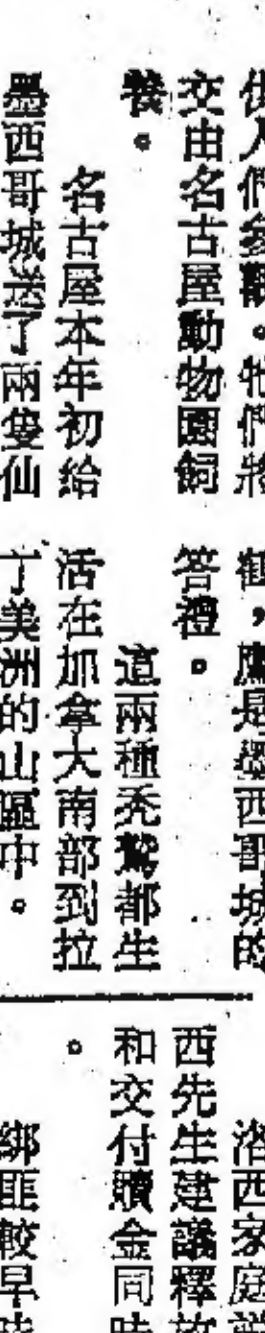 供人們參觀。牠們將
交由名古屋動物園飼
養。
名古屋本年初給
墨西哥城送了兩隻仙
鶴，鷹是墨西哥城的
答禮。
這兩種禿鷲都生
活在加拿大南部到拉
丁美洲的山區中。
洛西家庭
西先生建議釋放
和交付贖金同時
。
綁匪較早時